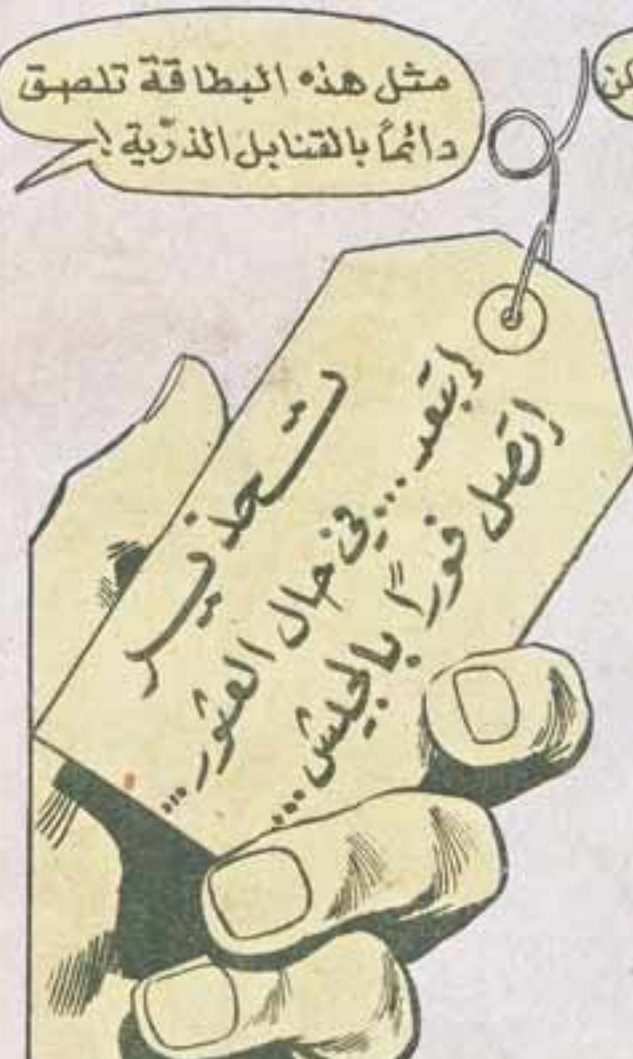 مثل هذه البطاقة تلصق
دائماً بالقنابل الذرّية!
تحذير
إبتعد... في حال العثور...
إتصل فوراً بالجيش...